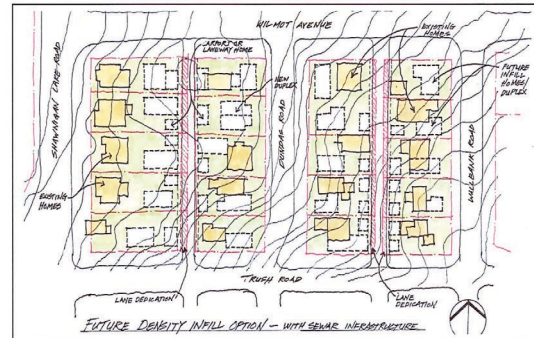 WILMOT AVENUE
SHAWNIGAN LAKE ROAD
CARPORT OR
LANEWAY HOME
NEW
DUPLEX
DUNDAS ROAD
EXISTING
HOMES
FUTURE
INFILL
HOMES/
DUPLEX
WELLBANK ROAD
EXISTING
HOMES
TRUSH ROAD
LANE DEDICATION
LANE
DEDICATION
FUTURE DENSITY INFILL OPTION – WITH SEWAR INFRASTRUCTURE